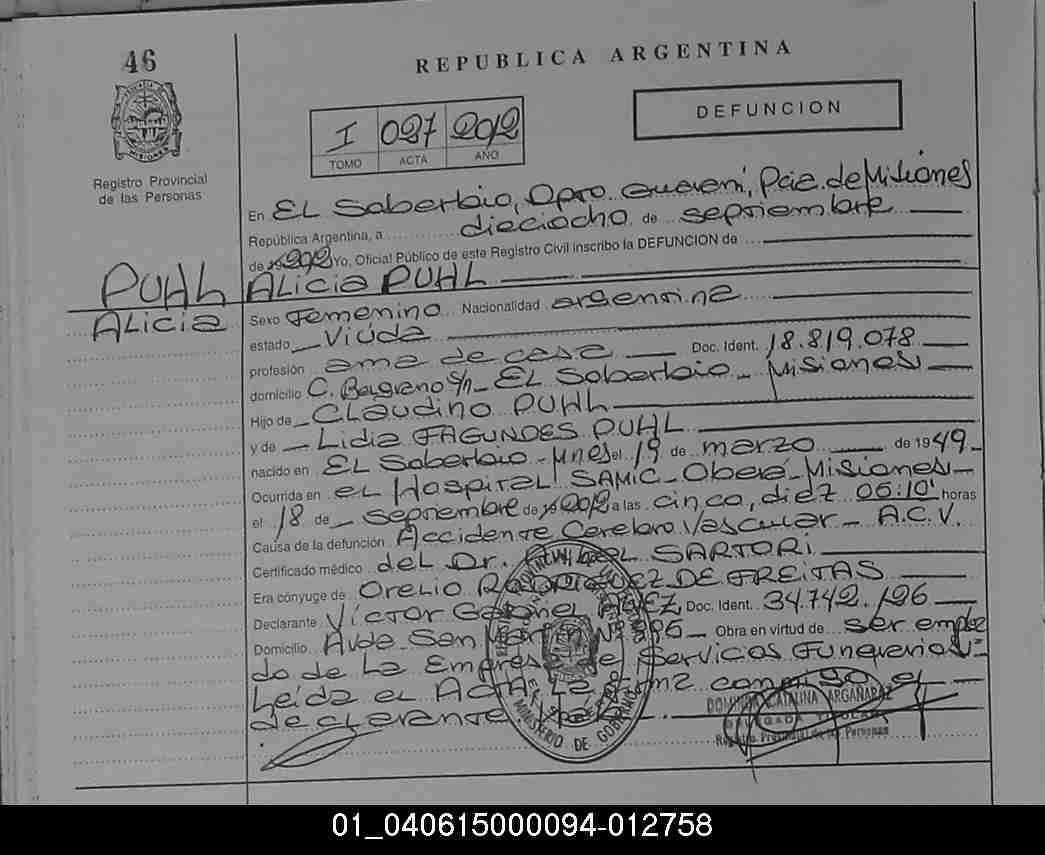 46
REPUBLICA ARGENTINA
DEFUNCION
I 027 2012
TOMO ACTA AÑO
Registro Provincial
de las Personas
En EL Soberbio, Dpto. Guaraní, Pcia. de Misiones
República Argentina, a dieciocho de septiembre
de 2012 Yo, Oficial Público de este Registro Civil inscribo la DEFUNCION de
PUHL Alicia PUHL
ALICIA Sexo Femenino Nacionalidad argentina
estado Viuda
profesión ama de casa Doc. Ident. 18.819.078
domicilio C. Belgrano S/n - EL Soberbio - Misiones
Hijo de CLaudino PUHL
y de Lidia FAGUNDES PUHL
nacido en EL Soberbio - Mnes el 19 de marzo de 1949
Ocurrida en el Hospital SAMIC - Oberá - Misiones
el 18 de septiembre de 2012 a las cinco, diez 05:10' horas
Causa de la defunción Accidente Cerebro Vascular - A.C.V.
Certificado médico del Dr. SARTORI
Era cónyuge de Orelio RODRIGUEZ DE FREITAS
Declarante Víctor Gabriel Doc. Ident. 34.742.196
Domicilio Avda. San Martín Nº Obra en virtud de ser emplea
do de La Empresa de Servicios Funerarios
Leída el Acta La firma conmigo el
declarante
MINISTERIO DE GOBIERNO
CATALINA ARGAÑARAZ
DELEGADA TITULAR
Registro Provincial de las Personas
01_040615000094-012758